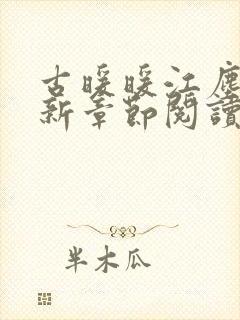 古暖暖江塵
新章節閱讀
半木瓜